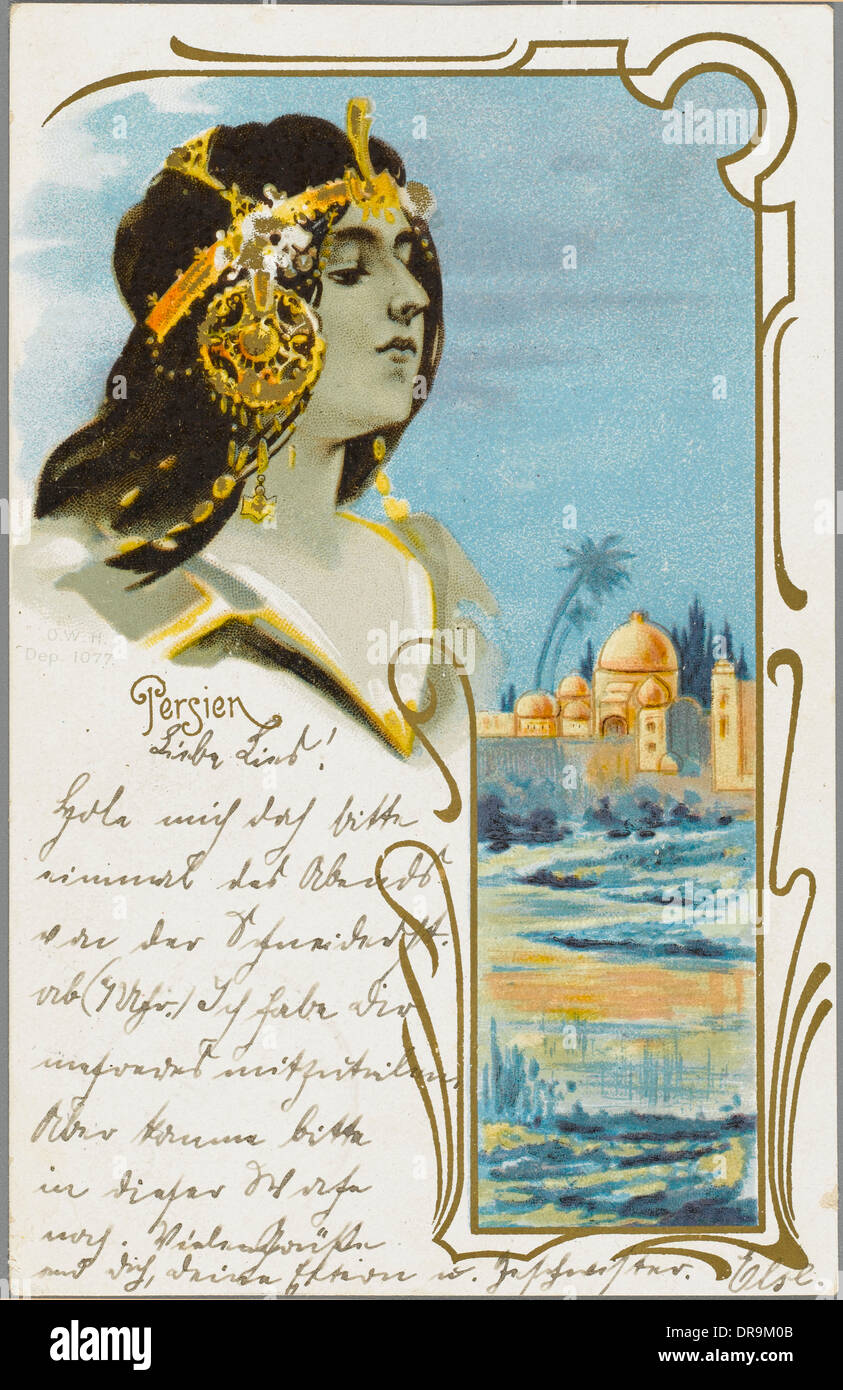 O.W.H.
Dep. 1077
Persien
Liebe Lies!
Hole mich doch bitte
einmal des Abends
von der Schneiderst.
ab (7 Uhr.) Ich habe dir
mehreres mitzuteilen,
Aber komme bitte
in dieser Woche
noch. Viele Grüße
und dich, deine Eltern u. Geschwister. Else.
alamy
Image ID: DR9M0B
www.alamy.com